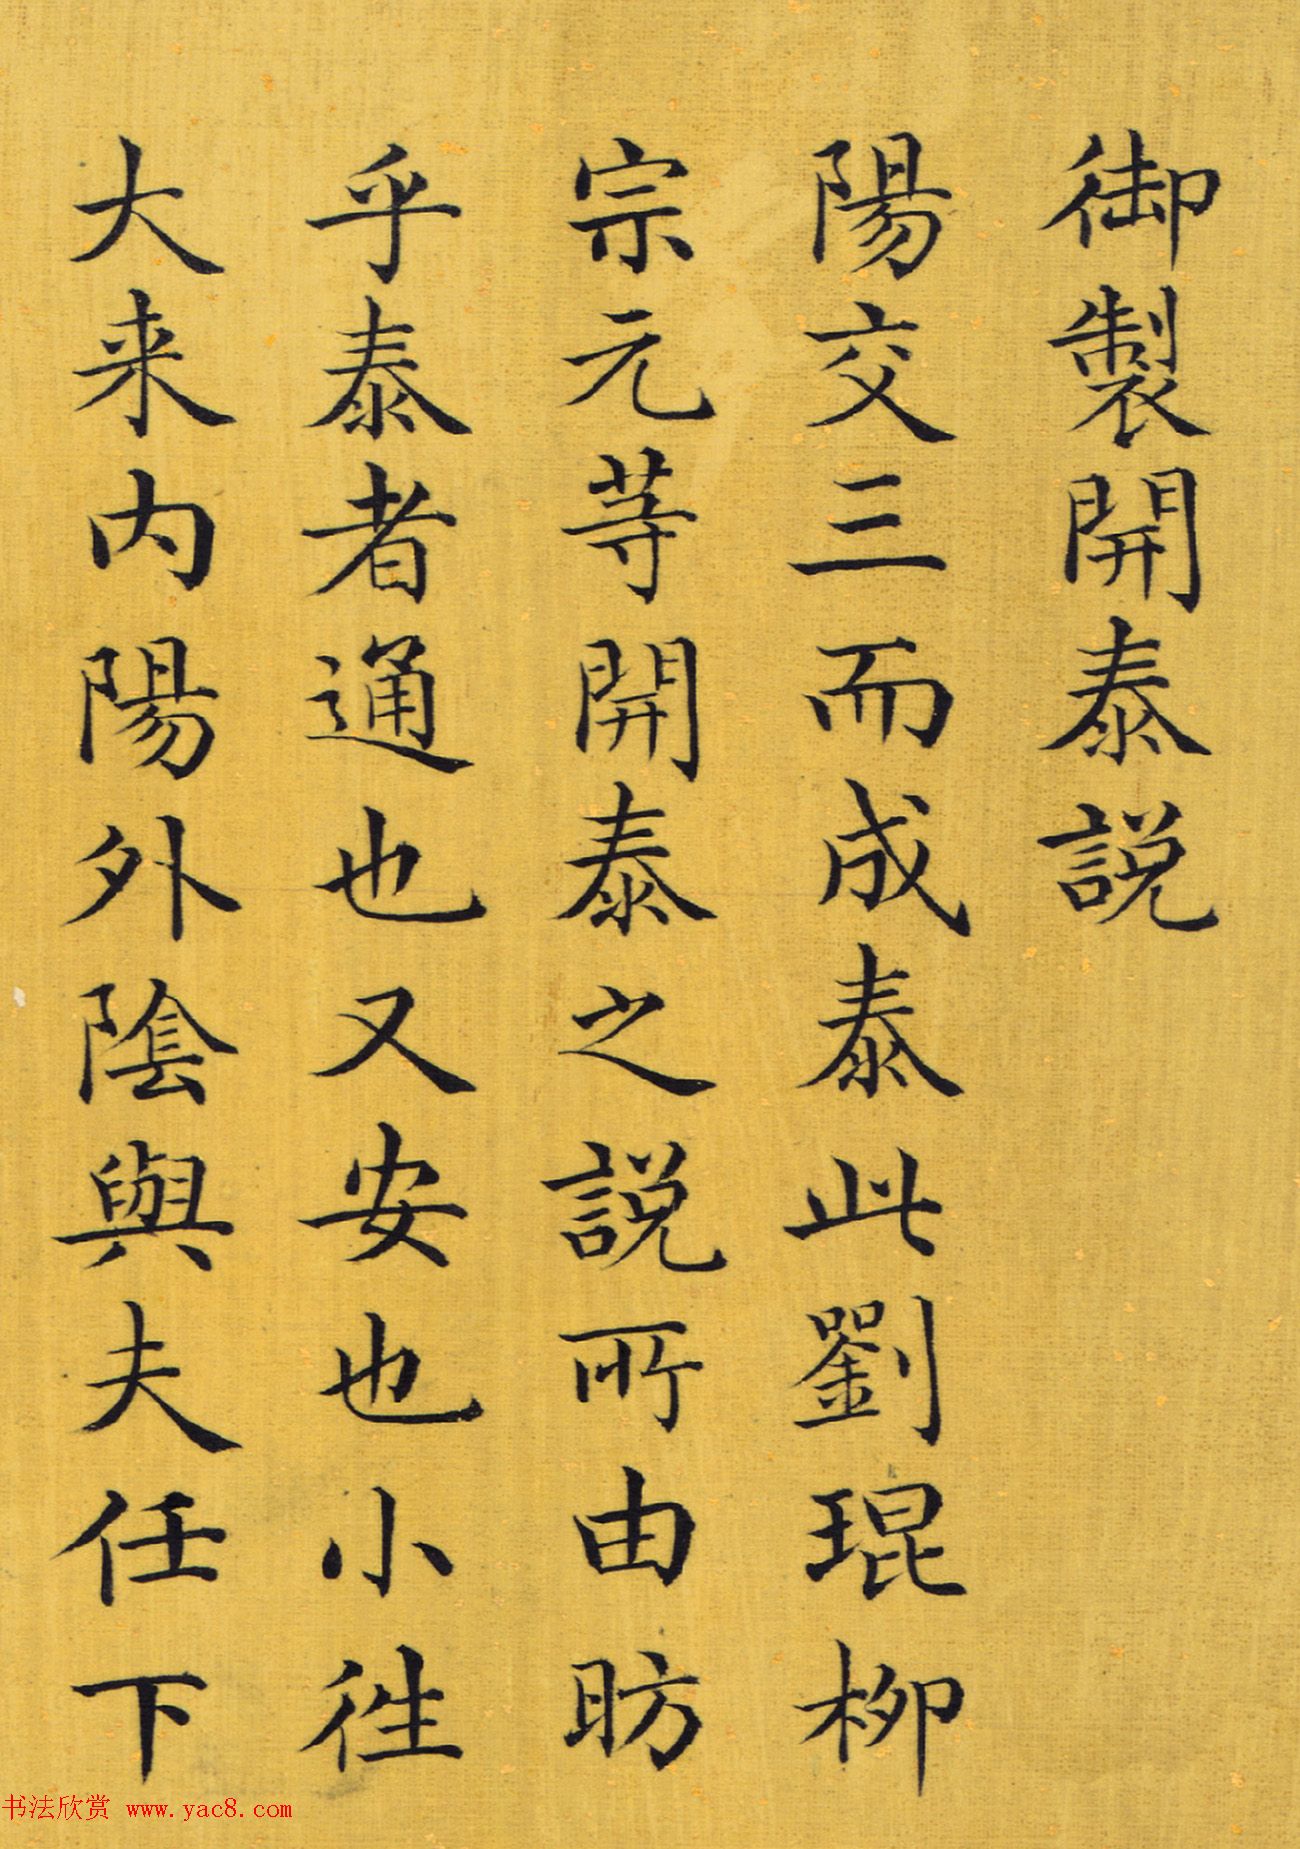 御製開泰説
陽交三而成泰此劉琨柳
宗元等開泰之説所由昉
乎泰者通也又安也小徃
大来内陽外陰與夫任下
书法欣赏 www.yac8.com